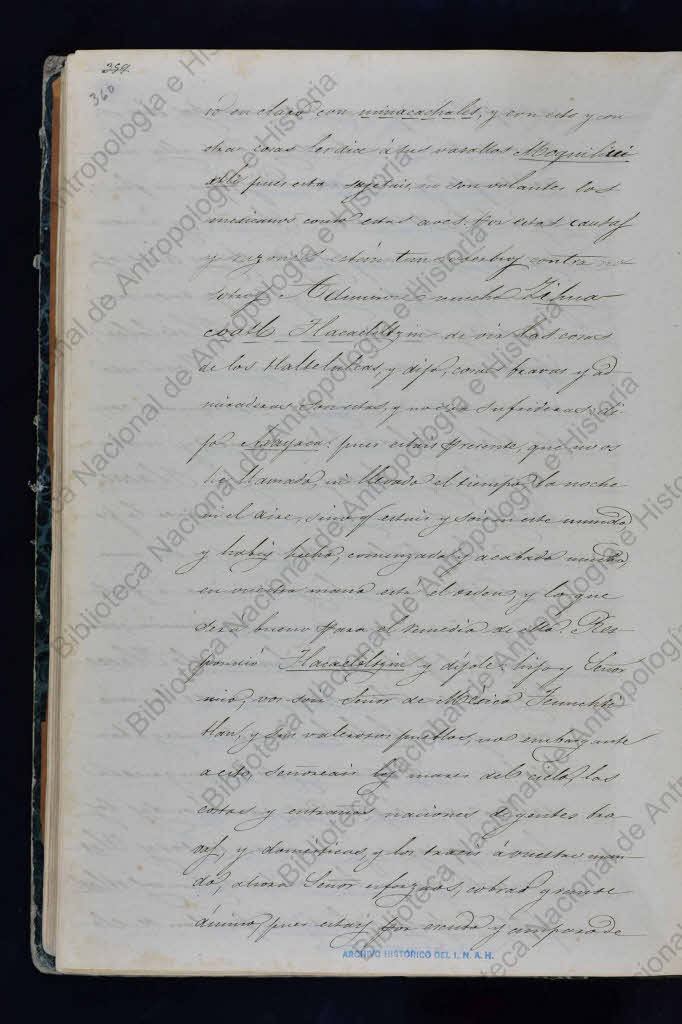 359.
360
ro en claro con minacachales, y con esto y con
otras cosas les dice á sus vasallos Moquihui
xtli pues esta sugetais, ni son volantes los
mexicanos como estas aves. Por estas causas
y razones están tan soberbios contra no
sotros. Admirose mucho Zihua
coatl Tlacaeleltzin de oir las cosas
de los tlaltelulcas, y dijo, cosas bravas y ad
miraderas son estas, y no son sufrideras: di
jo Axayaca: pues estais presente, que no os
ha llamado, ni llevado el tiempo, la noche
ni el aire, sino q estais y sois en este mundo
y habeis hecho, comenzado y acabado mucho
en vuestra mano está el orden, y lo que
será bueno para el remedio de ello. Res-
pondió Tlacaeleltzin y díjole: hijo y Señor
mio, vos sois Señor de México Tenuchti
tlan, y sus valerosos pueblos, no embargante
a esto, señoreais los mares del cielo, las
costas y entrañas naciones de gentes bra
vas, y domésticas, y los traeis á vuestro man-
do, ahora Señor esforzaos, cobrad grande
ánimo, pues estais por escudo y amparo de
ARCHIVO HISTÓRICO DEL I. N. A. H.
Biblioteca Nacional de Antropología e Historia